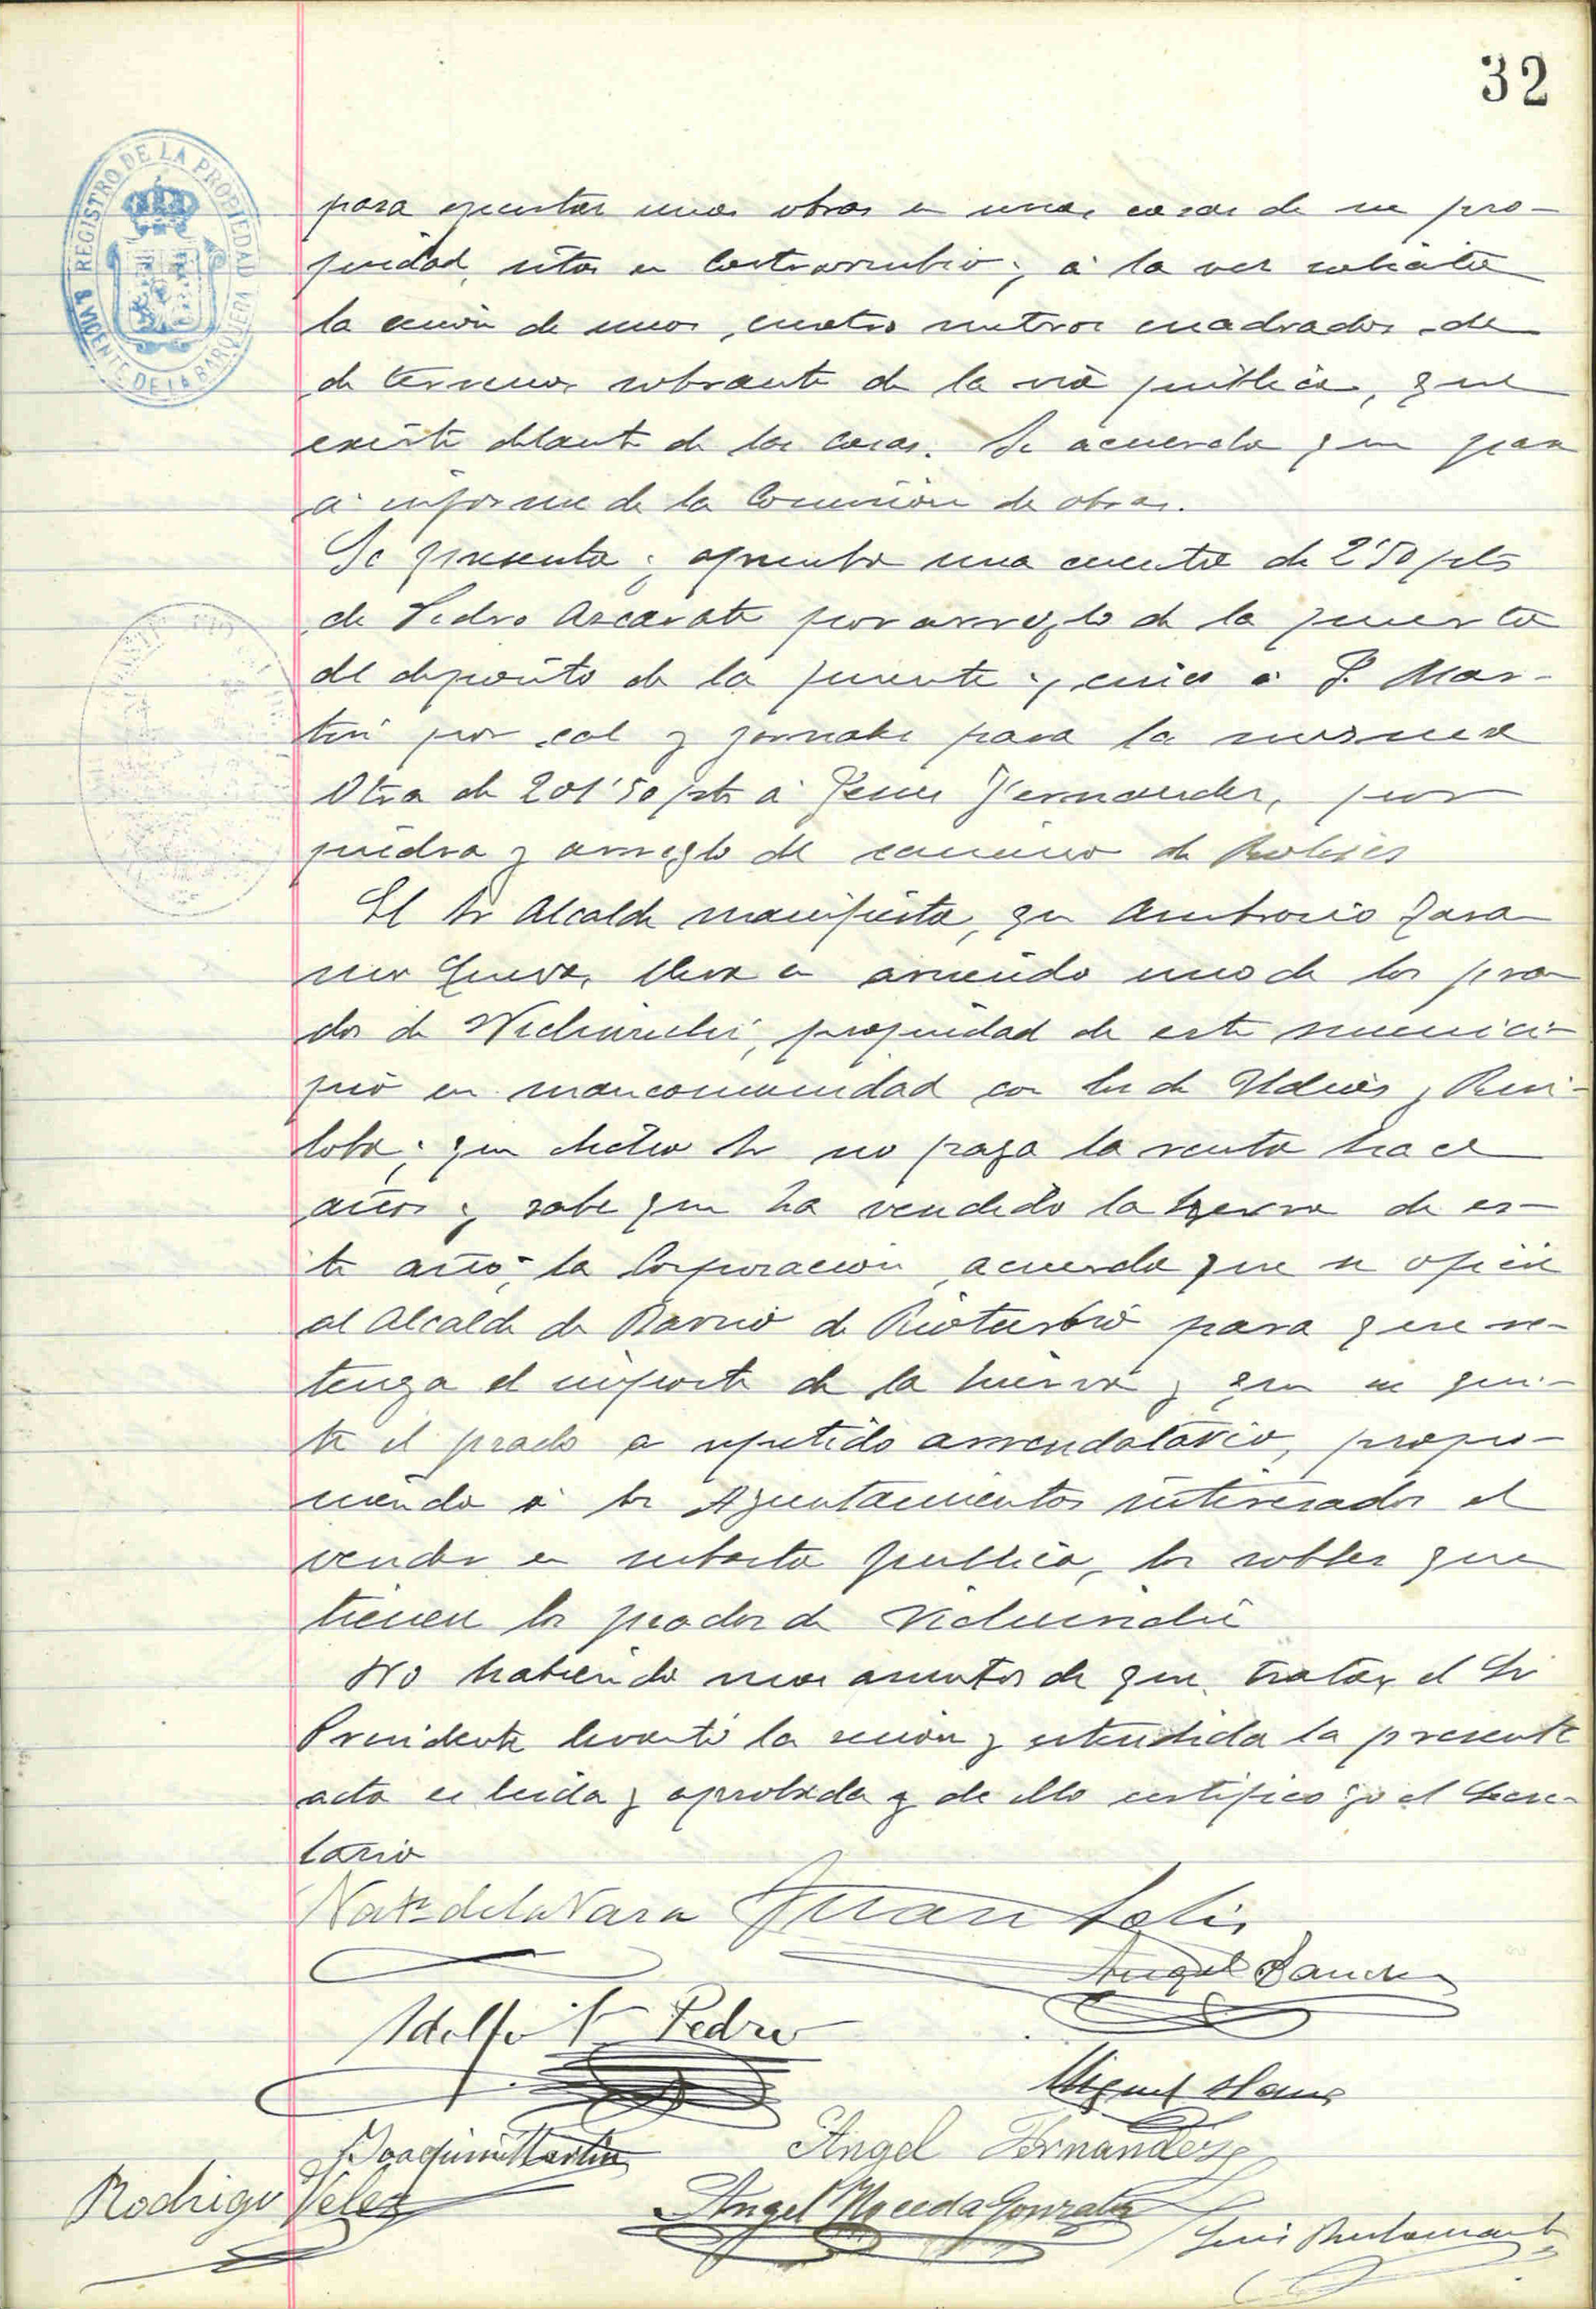 32
REGISTRO DE LA PROPIEDAD
S. VICENTE DE LA BARQUERA
para ejecutar unas obras en unas casas de su pro-
piedad, sitas en; á la vez solicita
la cesión de unos cuatro metros cuadrados de
de terreno sobrante de la via publica, que
existe delante de las casas. Se acuerda que pase
á informe de la Comision de obras.
Se presenta y aprueba una cuenta de 2'50 pts
de Pedro Azcarate por arreglo de la puerta
del deposito de la fuente y á P. Mar-
tin por cal y jornales para la misma
Otra de 201'50 pts á Jesus Fernandez, por
piedra y arreglo del camino de
El Sr Alcalde manifiesta, que Ambrosio
lleva en arriendo uno de los pra-
dos de propiedad de este munici-
pio en mancomunidad con los de Udias y Rui-
loba; que dicho Sr no paga la renta hace
años y sabe que ha vendido la hierva de es-
te año; la Corporacion acuerda que se oficie
al Alcalde de Barrio de Rioturbio para que re-
tenga el importe de la hierva y que se qui-
te el prado a repetido arrendatario, propo-
niendo á los Ayuntamientos interesados el
vender en subasta publica, los robles que
tienen los prados de
No habiendo mas asuntos de que tratar el Sr
Presidente levantó la sesion y extendida la presente
acta es leida y aprobada y de ello certifico yo el Secre-
tario
de la Vara Juan Solis
Angel Sanchez
Adolfo F Pedro
Miguel
Joaquin Martin Angel Fernandez
Rodrigo Velez Angel Noceda Gonzalez
Luis Bustamante